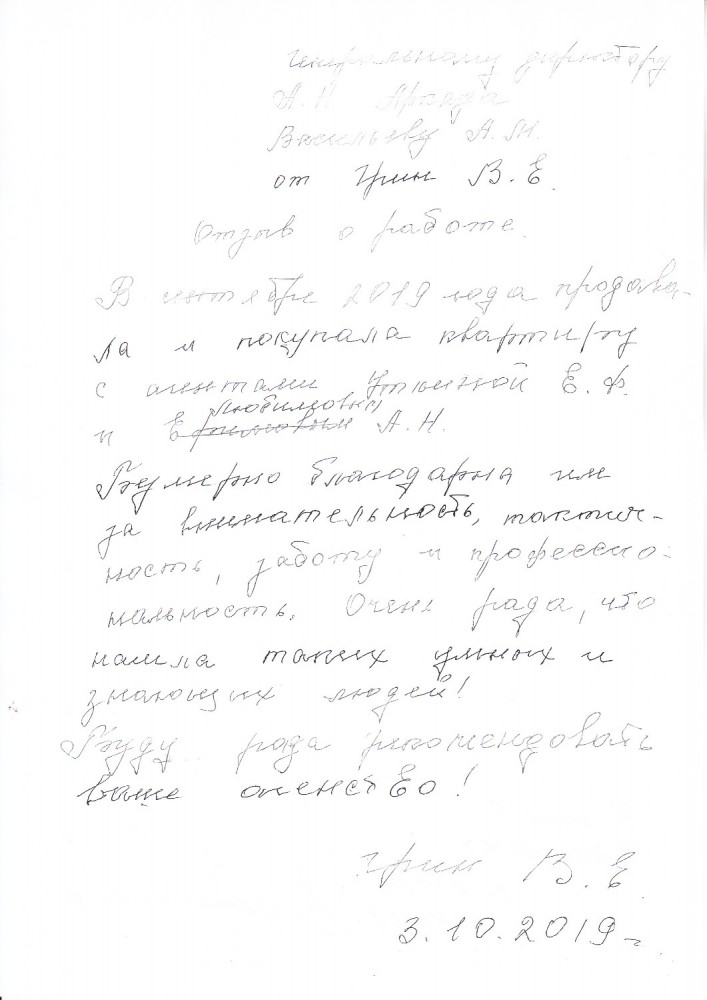 Генеральному директору
А.Н. Аркада
Васильеву А.М.
от Грин В.Е.
Отзыв о работе.
В сентябре 2019 года продава-
ла и покупала квартиру
с агентами Утлиной Е.Ф.
Любимовым
и А.Н.
Безмерно благодарна им
за внимательность, тактич-
ность, заботу и профессио-
нальность. Очень рада, что
нашла таких умных и
знающих людей!
Буду рада рекомендовать
ваше агенство!
Грин В.Е.
3.10.2019г